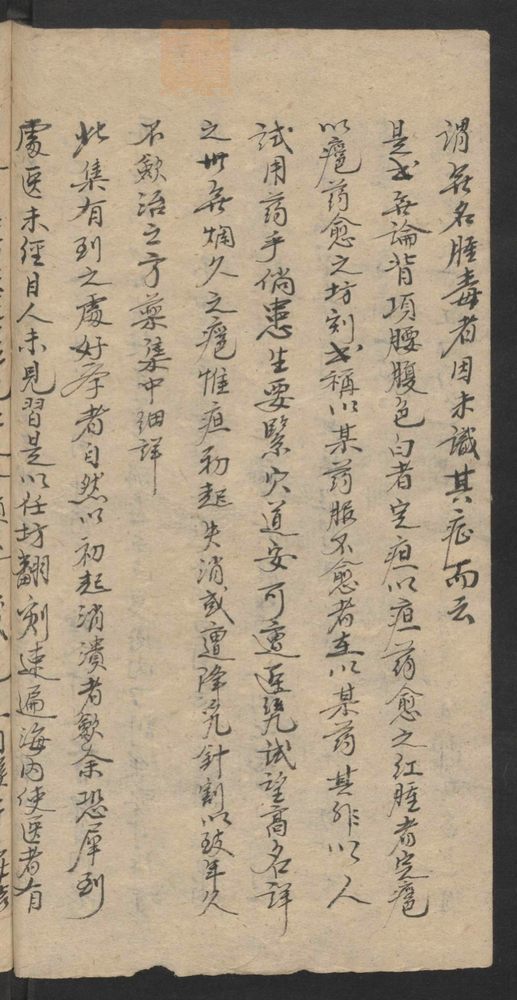 謂無名腫毒者因未識其症而云
是或無論背項腰腹色白者定疽以疽药愈之红腫者定癰
以癰药愈之坊刻或稱以某药服不愈者再以某药其非以人
試用药乎倘患生要緊穴道安可遭医凭試望高名詳
之世無爛久之癰惟疽初起失消或遭降凭針割以致年久
不歛治之方藥集中细詳
此集有到之處好孝者自然以初起消潰者歛余恐犀到
處医未經目人未見習是以任坊翻刻速遍海内使医者有